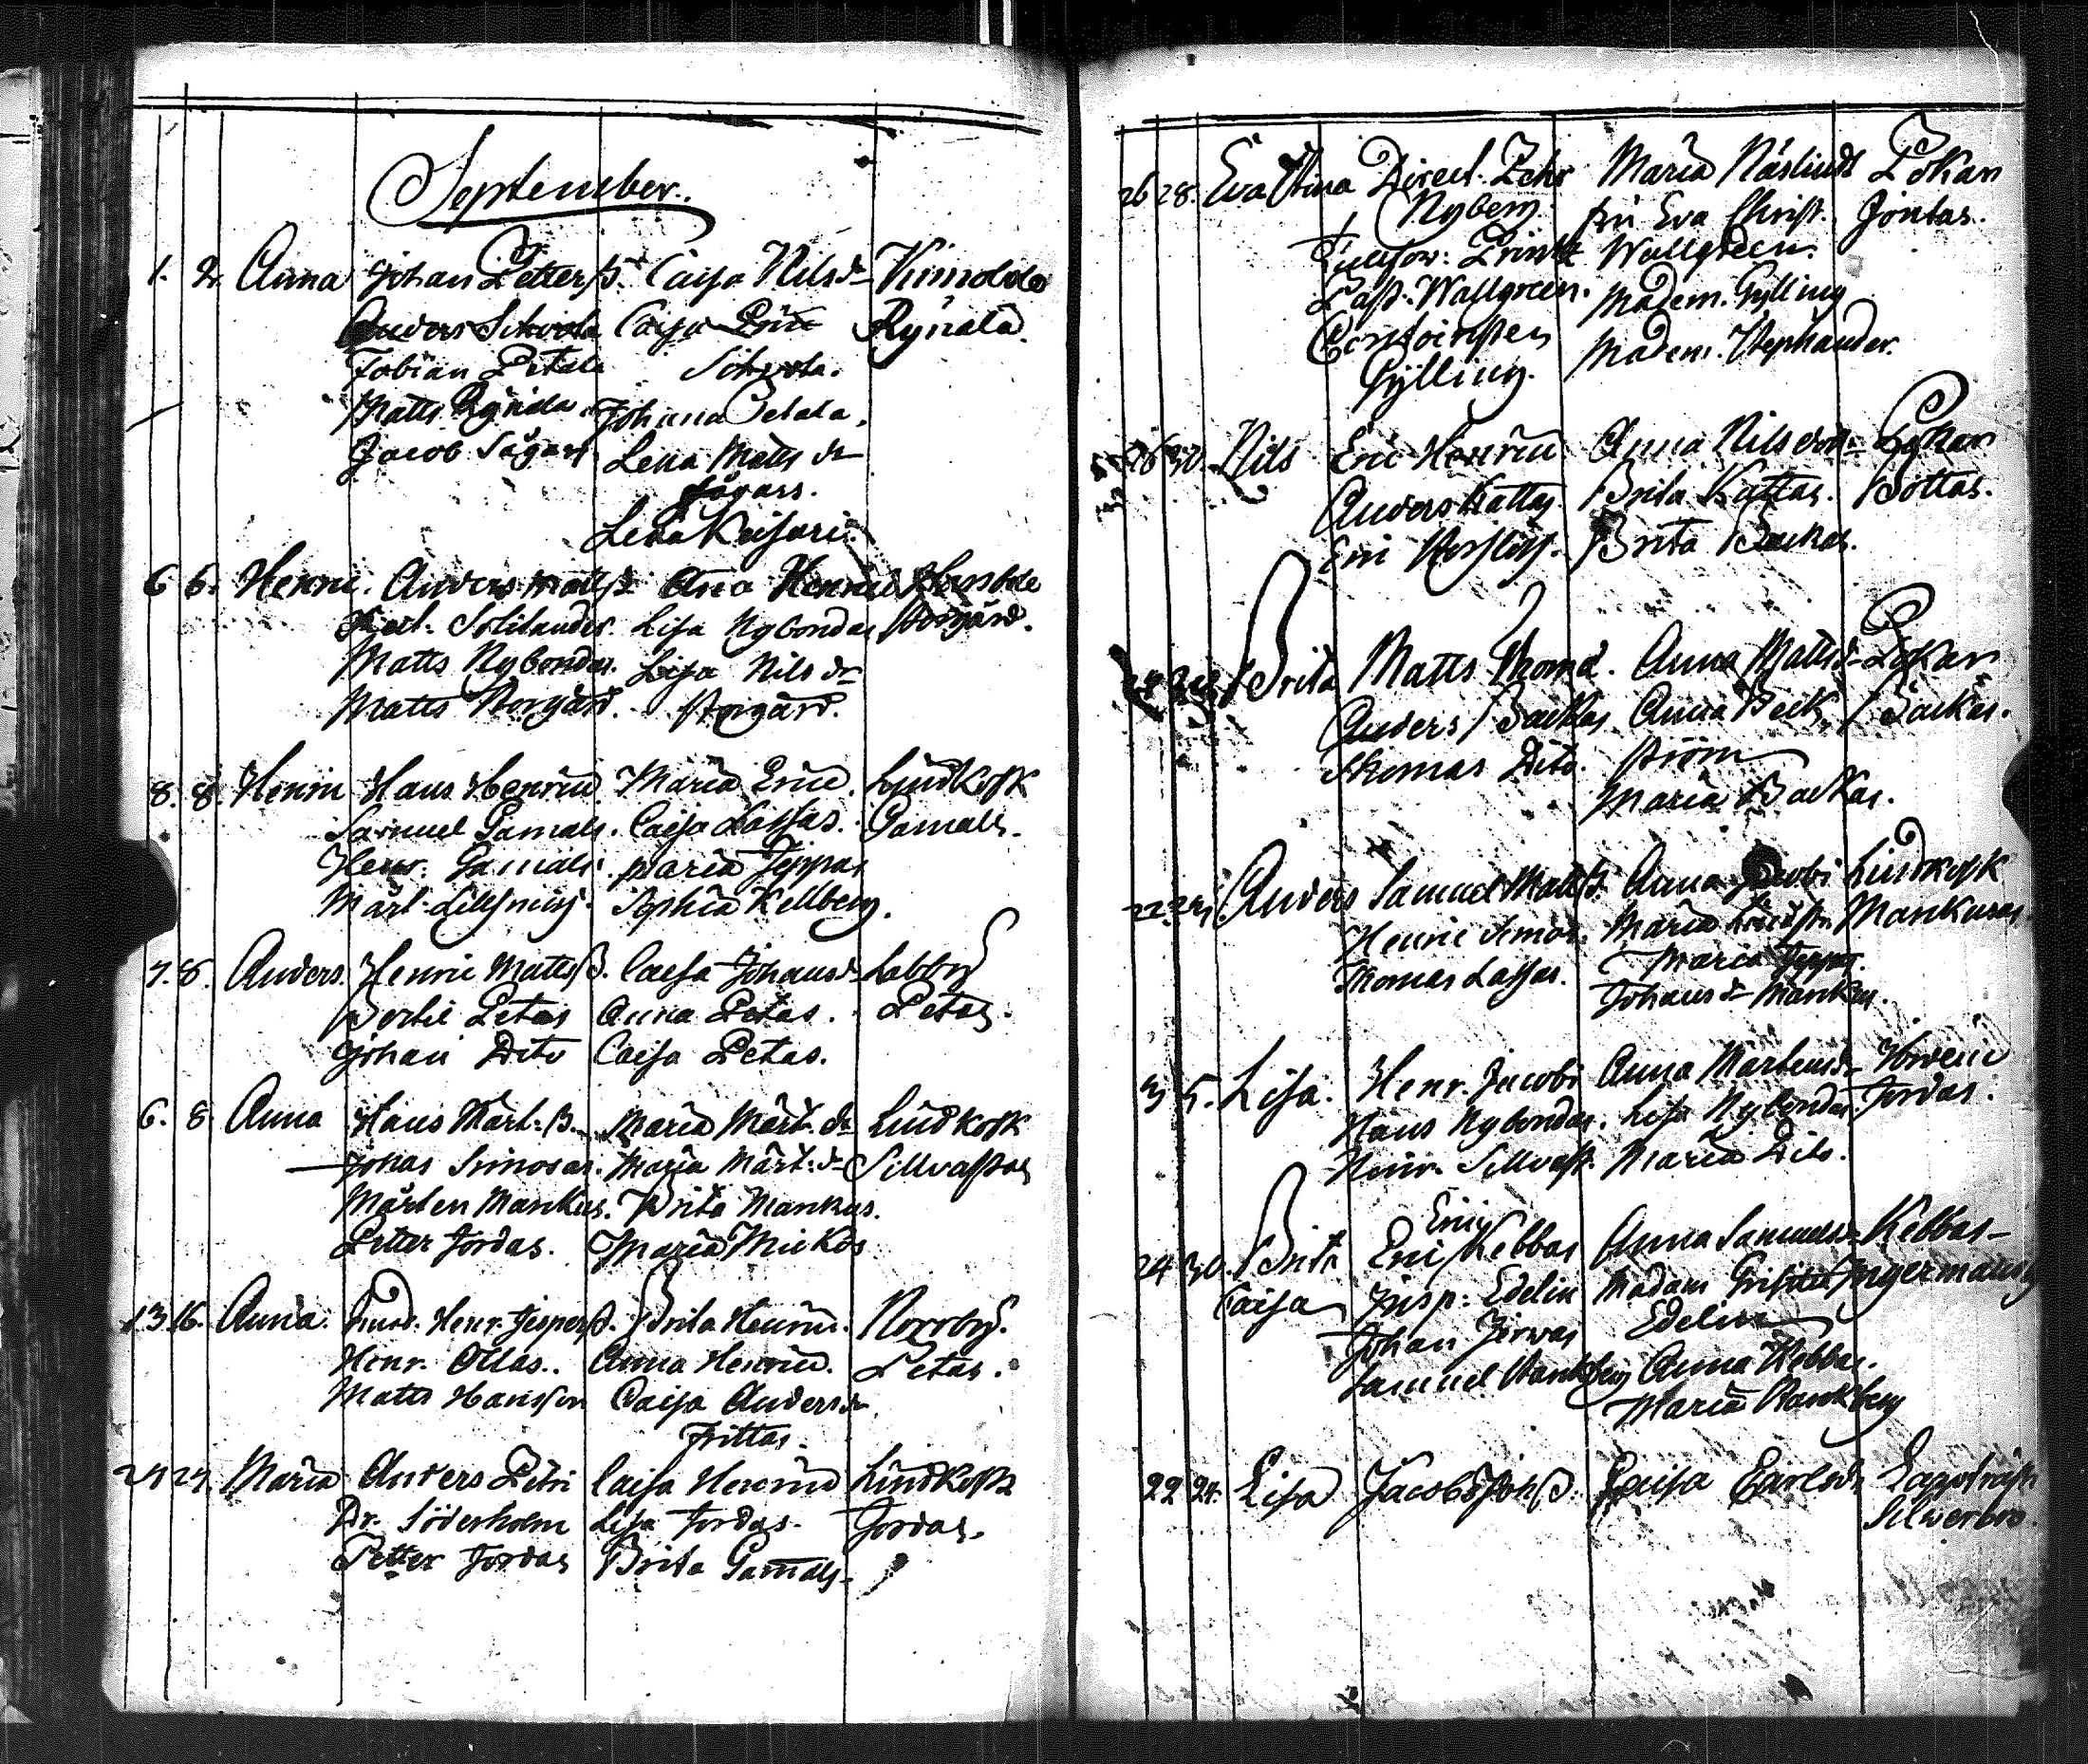 September.
1. 2. Anna Johan Petterss. Caisa Nilsdr Kimoblo
Anders Caisa Rynala.
Tobian Petala
Matts Rynala Johanna Petala.
Jacob Sågars Lena Matts dr
Sågars.
Lena Keisari.
6 6. Henric. Anders Mattss. Anna Henricd
Lisa Nybondas Norgård.
Matts Nybondas. Lisa Nils dr
Matts Norgård. Norgård.
8. 8. Henric Hans Henricss. Maria Ericd. Lindkosk
Samuel Gamals. Caisa Lassas. Gamals.
Henr. Gamals. Maria Jeppas
Mårt. Sophia Kellberg.
7. 8. Anders. Henric Mattss. Caisa Johansdr Labby
Bertil Petas Anna Petas. Petas.
Johan Dito Caisa Petas.
6. 8 Anna Hans Mårt. ss. Maria Mårt. dr Lindkosk
Jonas Simosas. Maria Mårt. dr Sillvastas
Mårten Mankus. Brita Mankus.
Petter Jordas. Maria Mickos
13. 16. Anna. Henr. Jesperss. Brita Henricd. Norrby.
Henr. Ollas. Anna Henricd. Petas.
Matts Hansson Caisa Andersdr
Frittas.
24 24 Maria Anders Petri Caisa Henricd Lindkosk
Dr. Söderholm Lisa Jordas. Jordas.
Petter Jordas Brita Gamals.
26 28. Eva Stina Direct. Pehr Maria Näslindt Lökan
Nyberg. Fru Eva Christ. Jontas.
Printz Wallgreen.
Past. Wallgreen. Madem. Gylling
Madem. Stephander.
Gylling.
26 30. Nils Eric Henricss Anna Nilsdottr Lökan
Anders Kattas. Brita Kattas. Bottas.
Eric Brita Backas.
Brita Matts Thomas. Anna Mattsdr Lökan
Anders Backas Anna Beck Backas.
Thomas Dito. ström
Maria Backas.
22. 24 Anders Samuel Mattss. Anna Jacobs Lindkosk
Henric Simos. Maria Mankusas
Thomas Lassas. Maria Jeppas.
Johansdr Mankus.
3 5. Lisa. Henr. Jacobs Anna Mårtensdr
Hans Nybondas. Lisa Nybondas. Jordas.
Henr. Sillvast. Maria Dito.
Eric
24 30. Brita Eric Kebbas Anna Samuelsdr Kebbas-
Caisa Insp. Edelin Madam Ingermans
Johan Jerwas Edelin
Samuel Stankberg Anna Kebbas.
Maria Stankberg
22 24. Lisa Jacob Johss. Caisa Carlsdr
Silwerbro.